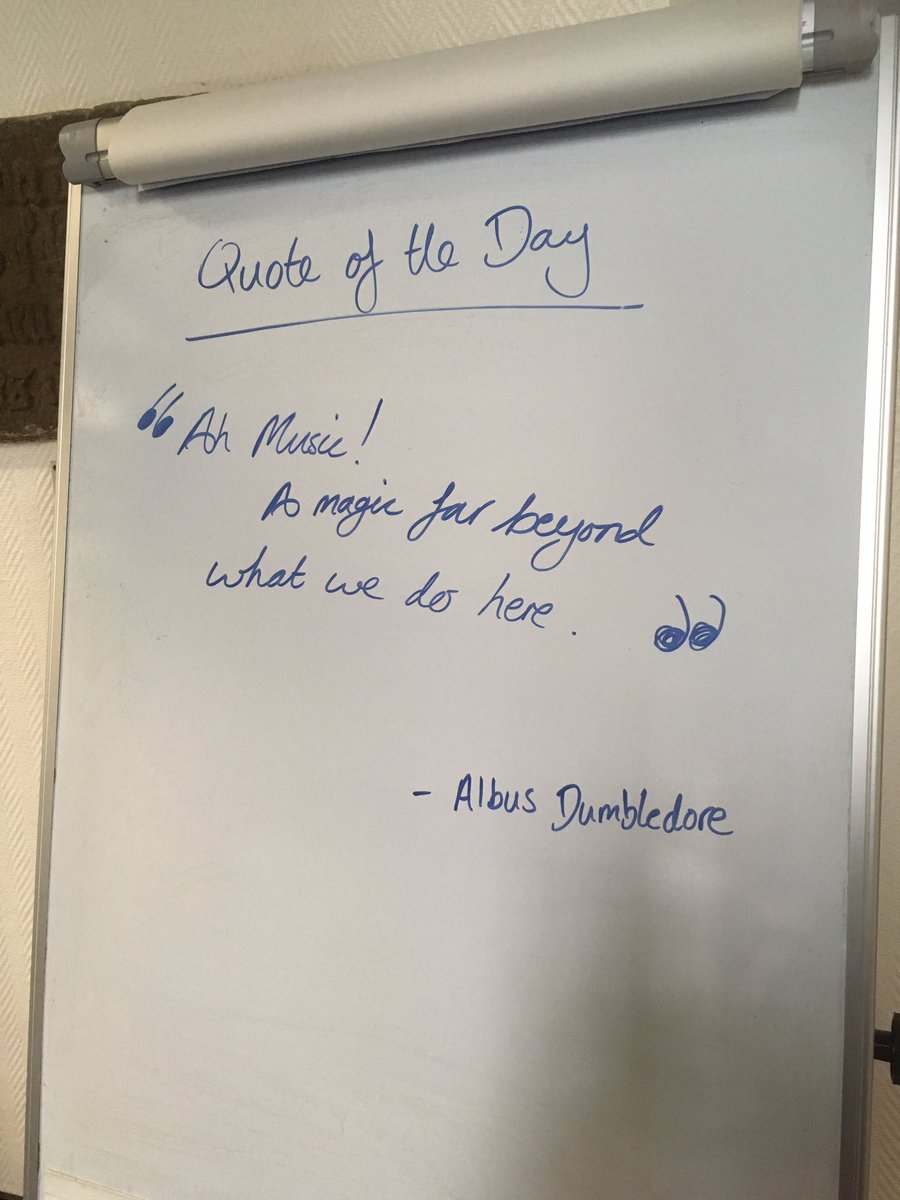 Quote of the Day
“Ah Music!
A magic far beyond
what we do here.”
- Albus Dumbledore